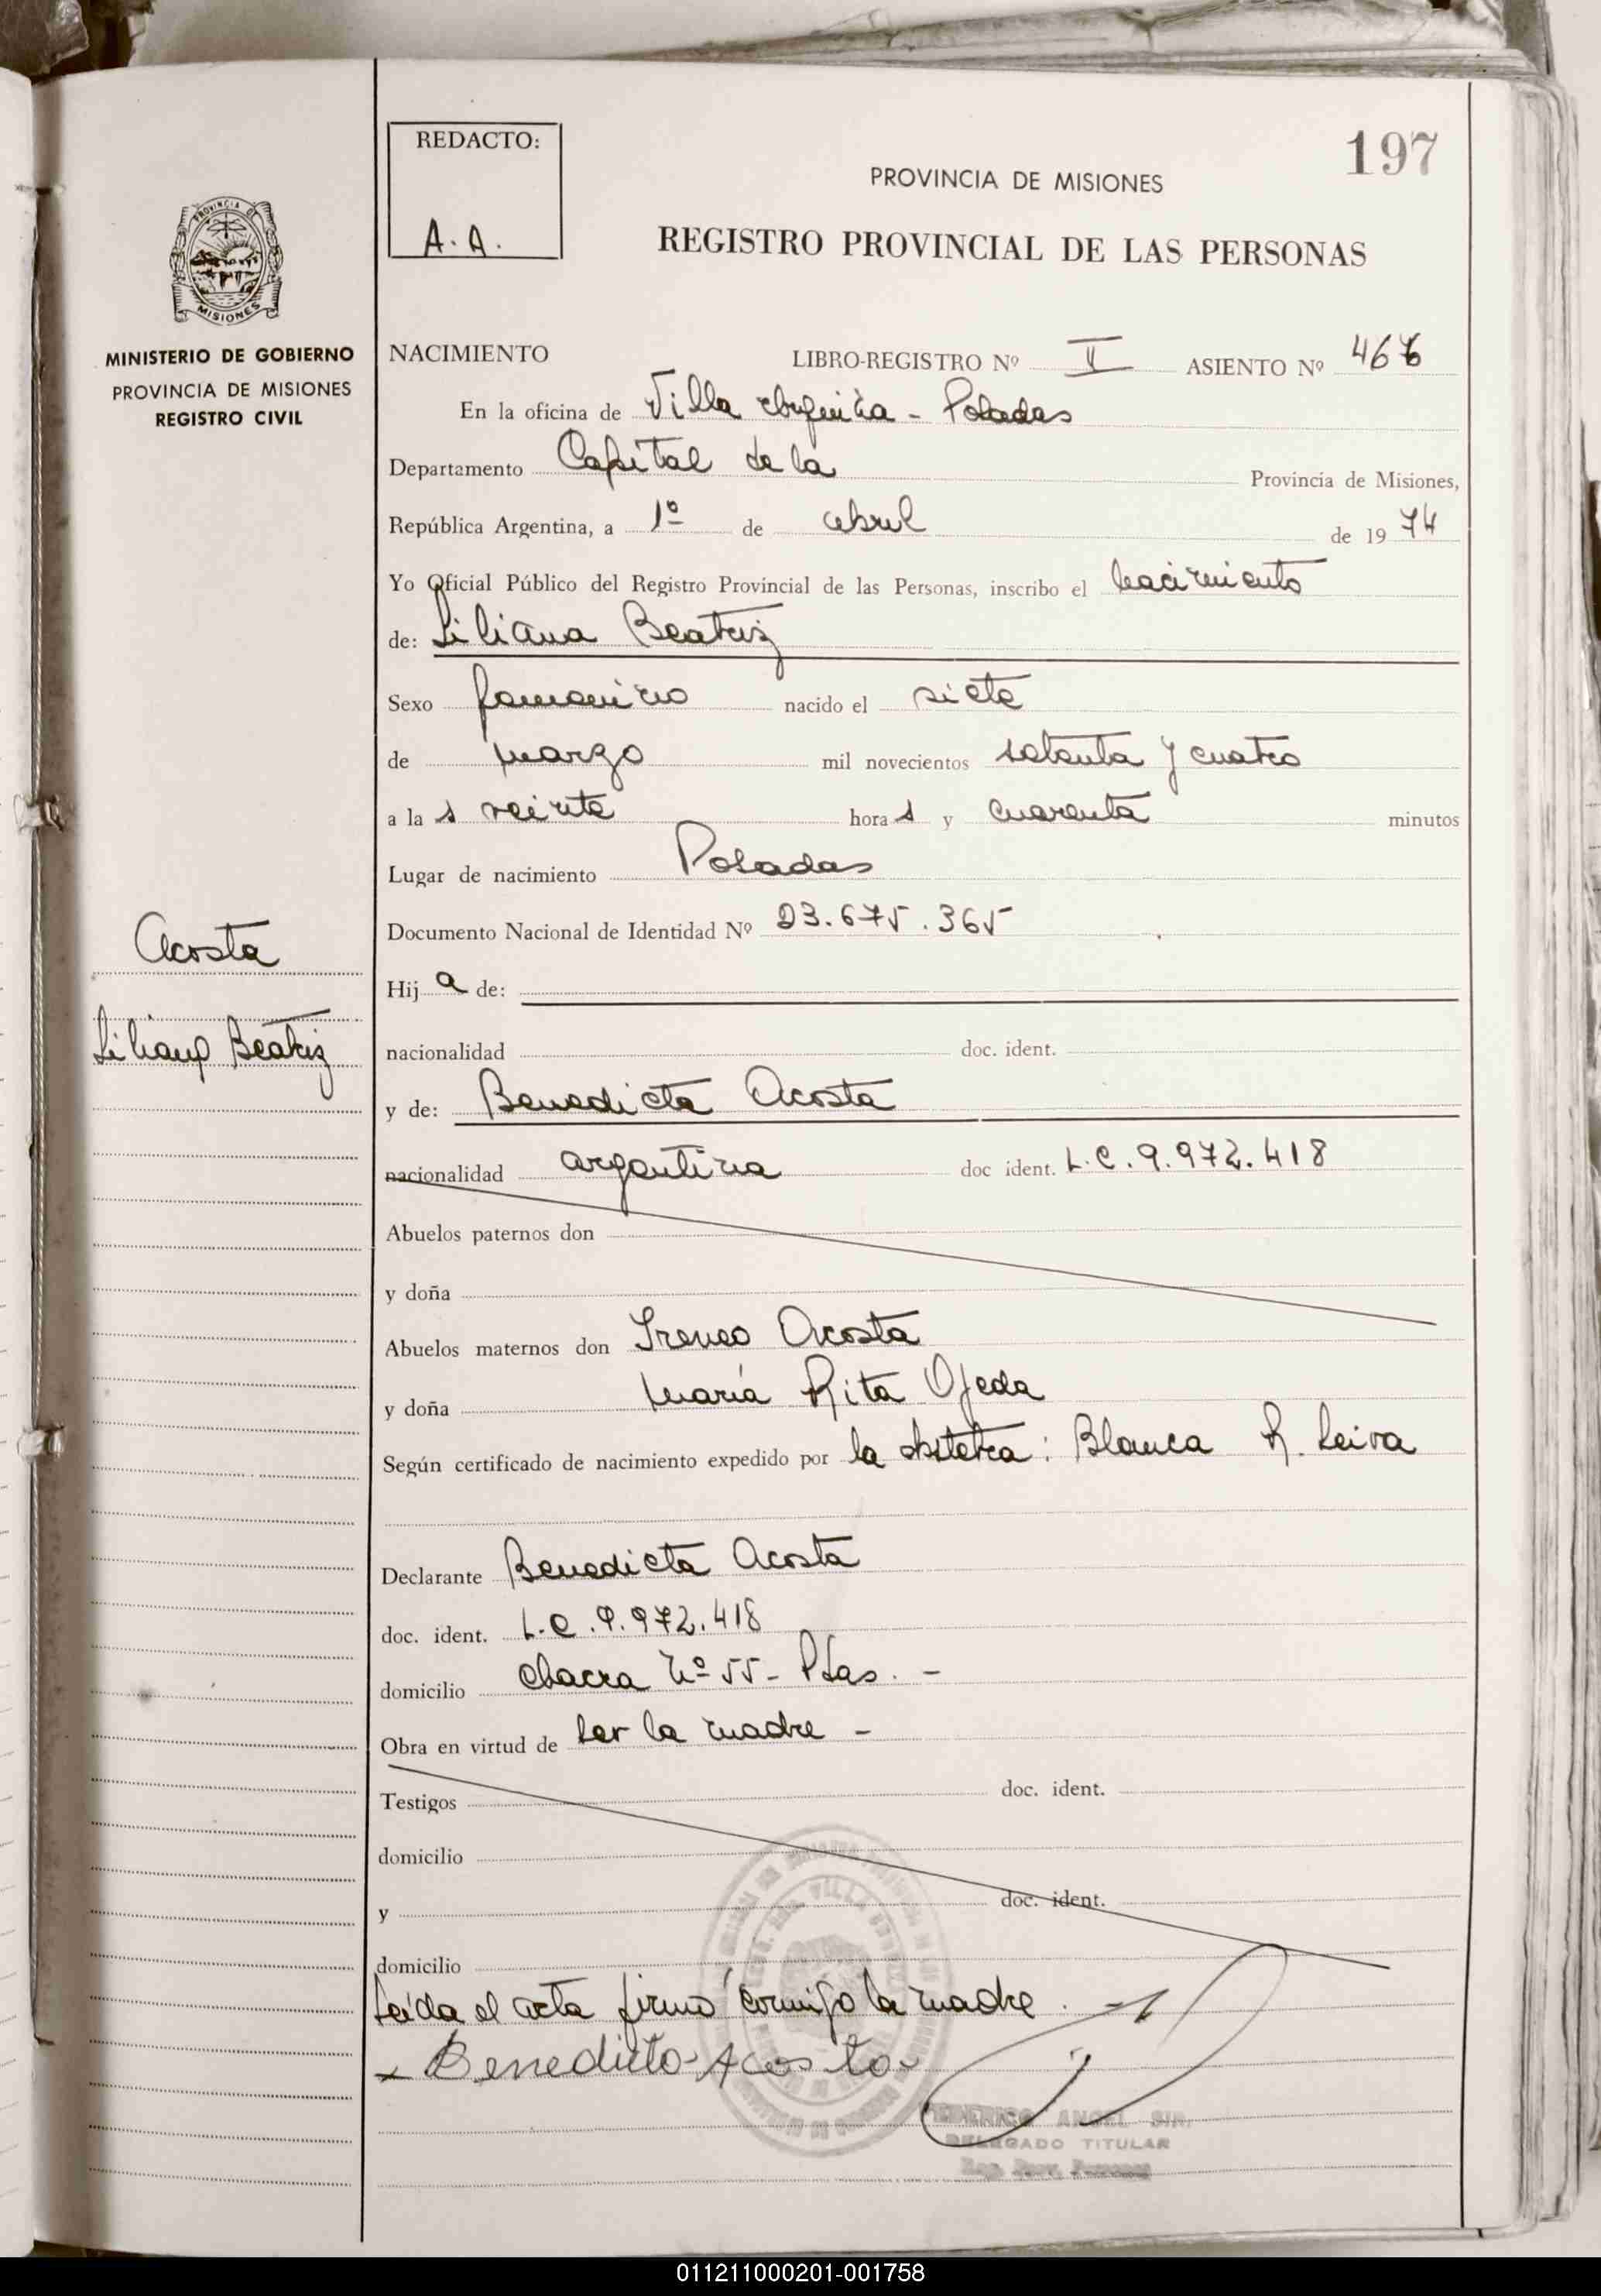 197
REDACTO:
A. A.
PROVINCIA DE MISIONES
REGISTRO PROVINCIAL DE LAS PERSONAS
PROVINCIA DE
MISIONES
MINISTERIO DE GOBIERNO
PROVINCIA DE MISIONES
REGISTRO CIVIL
NACIMIENTO LIBRO-REGISTRO Nº II ASIENTO Nº 466
En la oficina de Villa Urquiza - Posadas
Departamento Capital de la Provincia de Misiones,
República Argentina, a 1º de abril de 1974
Yo Oficial Público del Registro Provincial de las Personas, inscribo el nacimiento
de: Liliana Beatriz
Sexo femenino nacido el siete
de marzo mil novecientos setenta y cuatro
a la s veinte hora s y cuarenta minutos
Lugar de nacimiento Posadas
Documento Nacional de Identidad Nº 23.675.365
Acosta
Liliana Beatriz
Hij a de:
nacionalidad doc. ident.
y de: Benedicta Acosta
nacionalidad argentina doc ident. L.C. 9.972.418
Abuelos paternos don
y doña
Abuelos maternos don Ireneo Acosta
y doña María Rita Ojeda
Según certificado de nacimiento expedido por la obstetra: Blanca R. Leiva
Declarante Benedicta Acosta
doc. ident. L.C. 9.972.418
domicilio chacra Nº 55 - Pdas. -
Obra en virtud de ser la madre -
Testigos doc. ident.
domicilio
y doc. ident.
domicilio
Leída el acta firmó conmigo la madre. -
x Benedicta Acosta
ANGEL
DELEGADO TITULAR
011211000201-001758